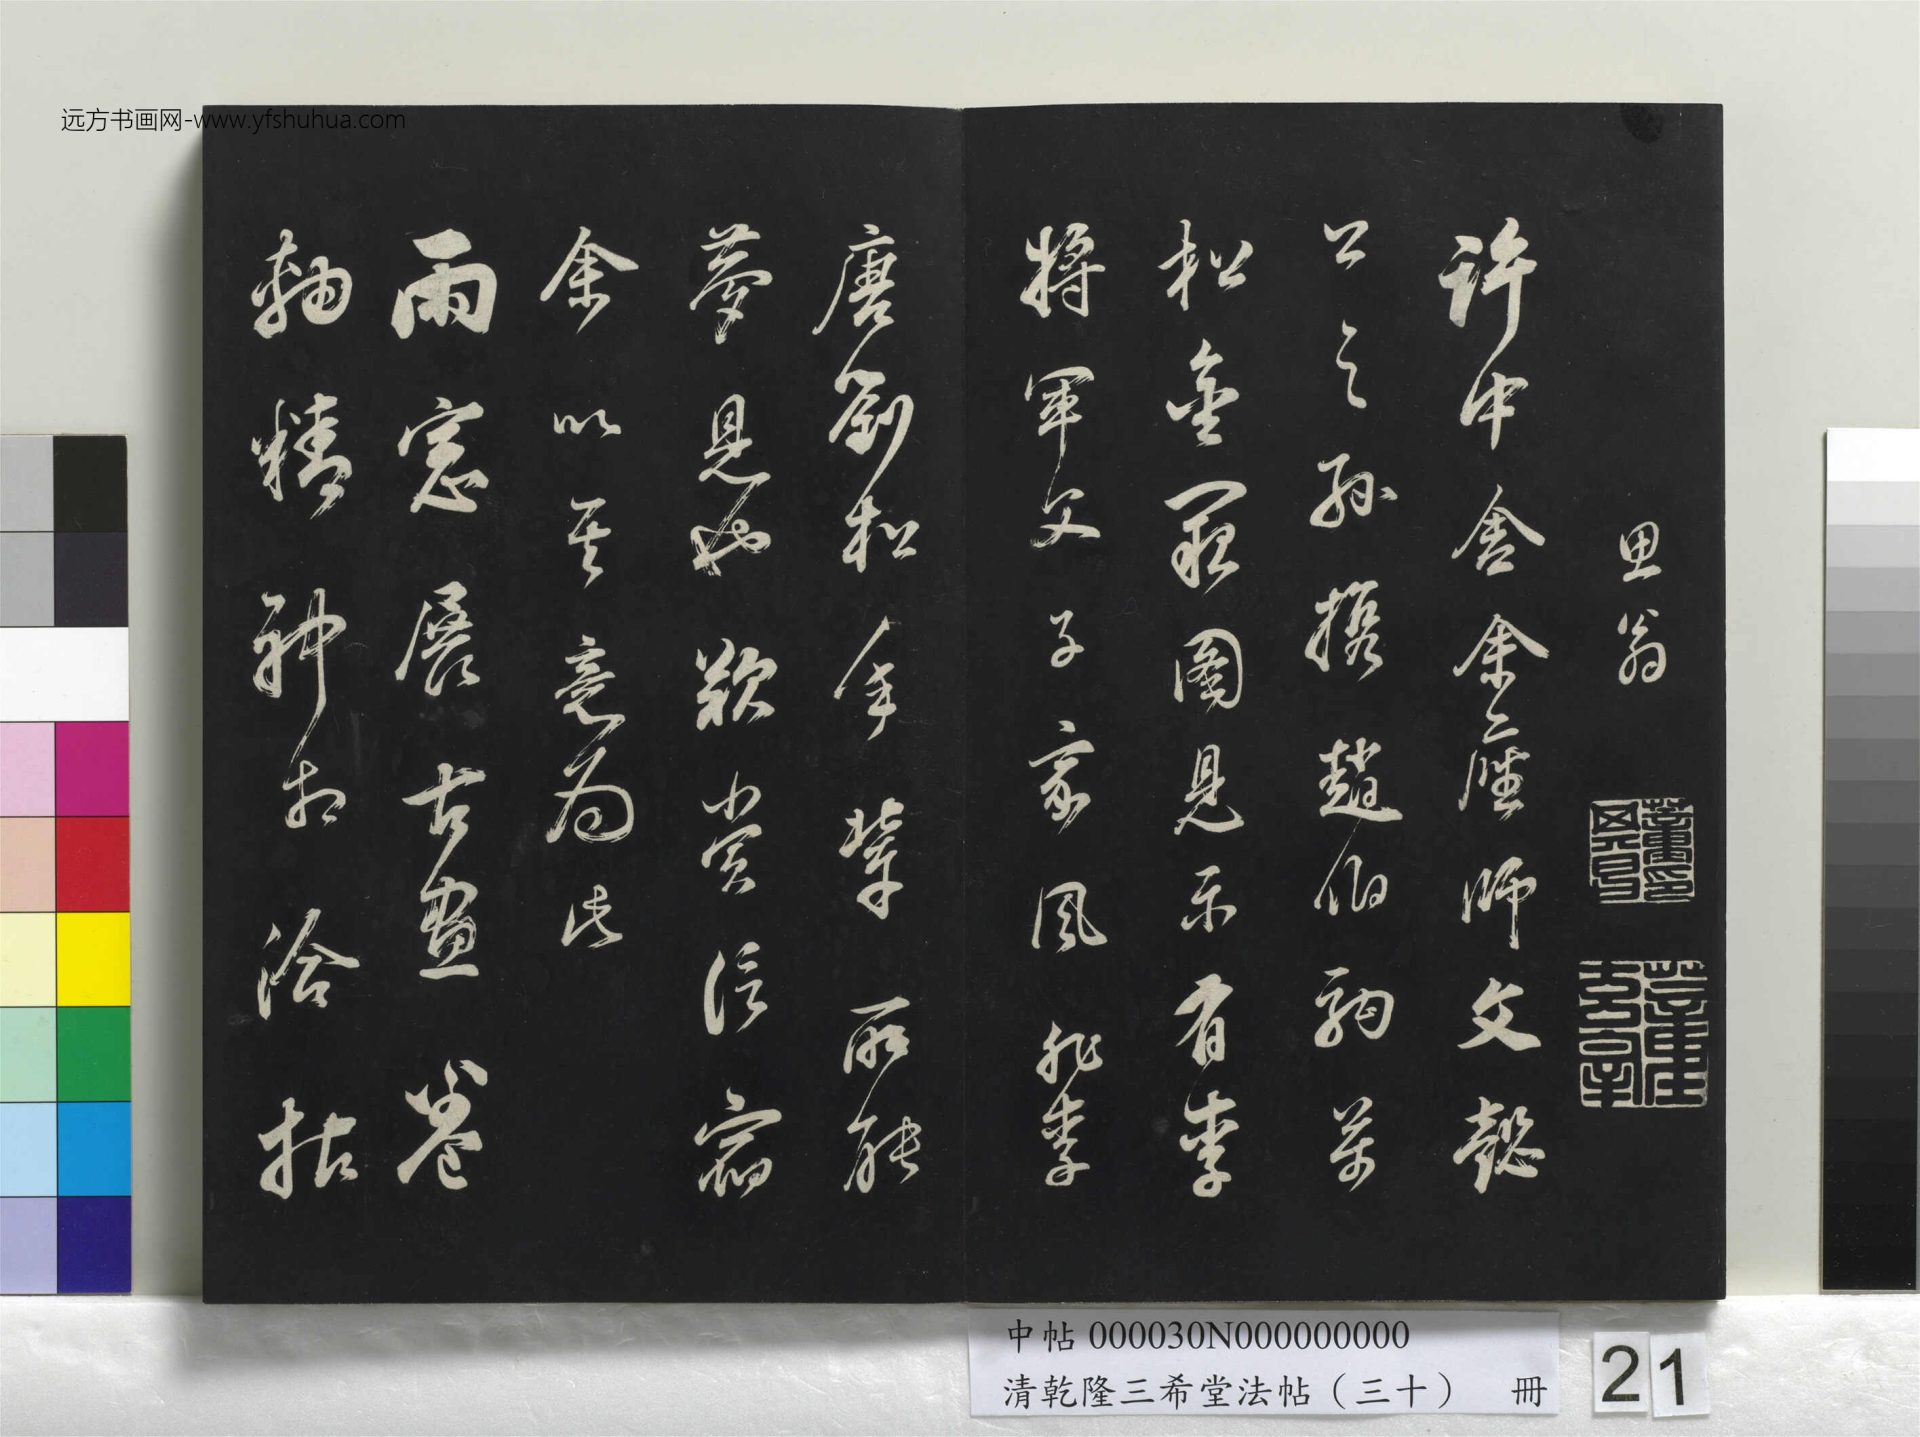 思翁
許中舍余座師文懿
公之孫携趙伯駒萬
松金闕圖見示有李
將軍父子家風非李
唐劉松年輩所能
夢見也歎賞信宿
余以其意為此
雨窓展古畫卷
軸精神相洽拈
远方书画网-www.yfshuhua.com
中帖 000030N000000000
清乾隆三希堂法帖（三十） 冊
21